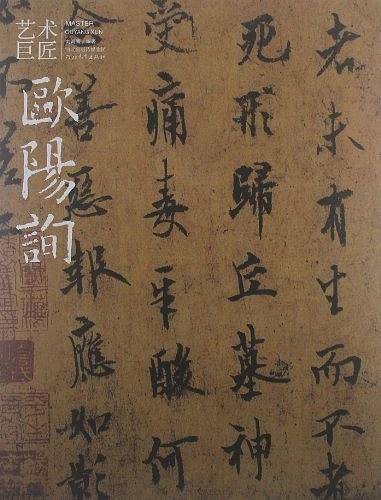 艺术
巨匠
MASTER
OUYANG XUN
歐陽詢
者未有生而不老
死形歸丘墓神
受痛毒辛酸何
念善惡報應如影